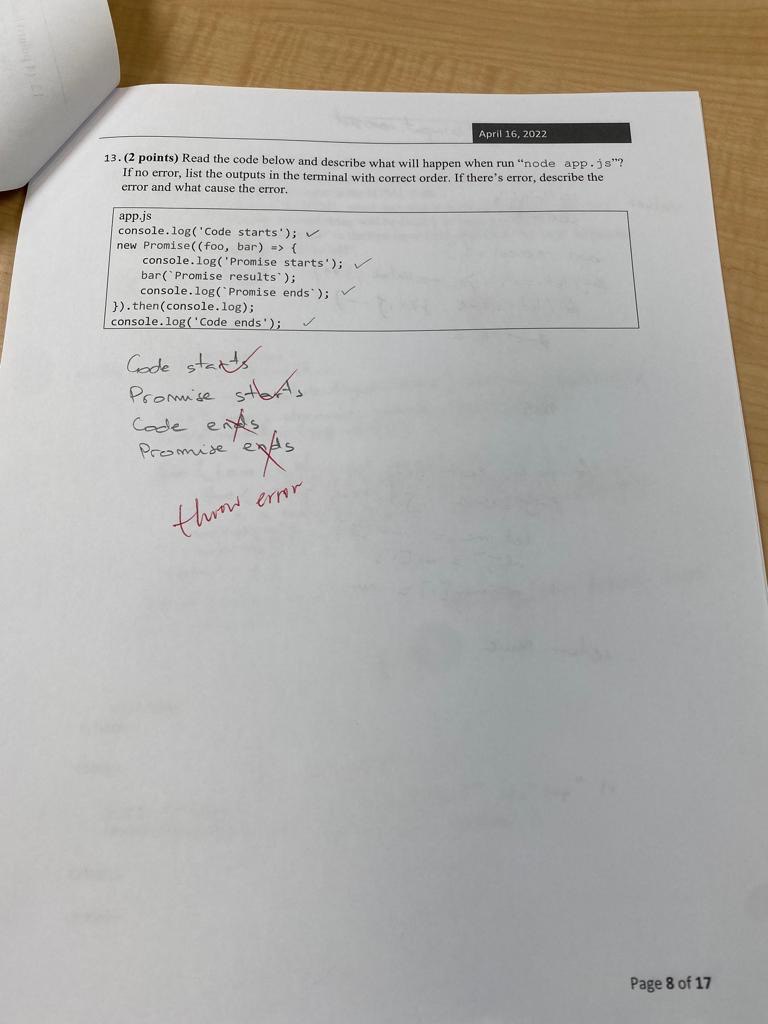 April 16, 2022
13. (2 points) Read the code below and describe what will happen when run “node app.js”?
If no error, list the outputs in the terminal with correct order. If there's error, describe the
error and what cause the error.
app.js
console.log('Code starts'); ✓
new Promise((foo, bar) => {
console.log('Promise starts'); ✓
bar(`Promise results`);
console.log(`Promise ends`); ✓
}).then(console.log);
console.log('Code ends'); ✓
Code starts
Promise starts
Code ends
Promise ends
throw error
Page 8 of 17